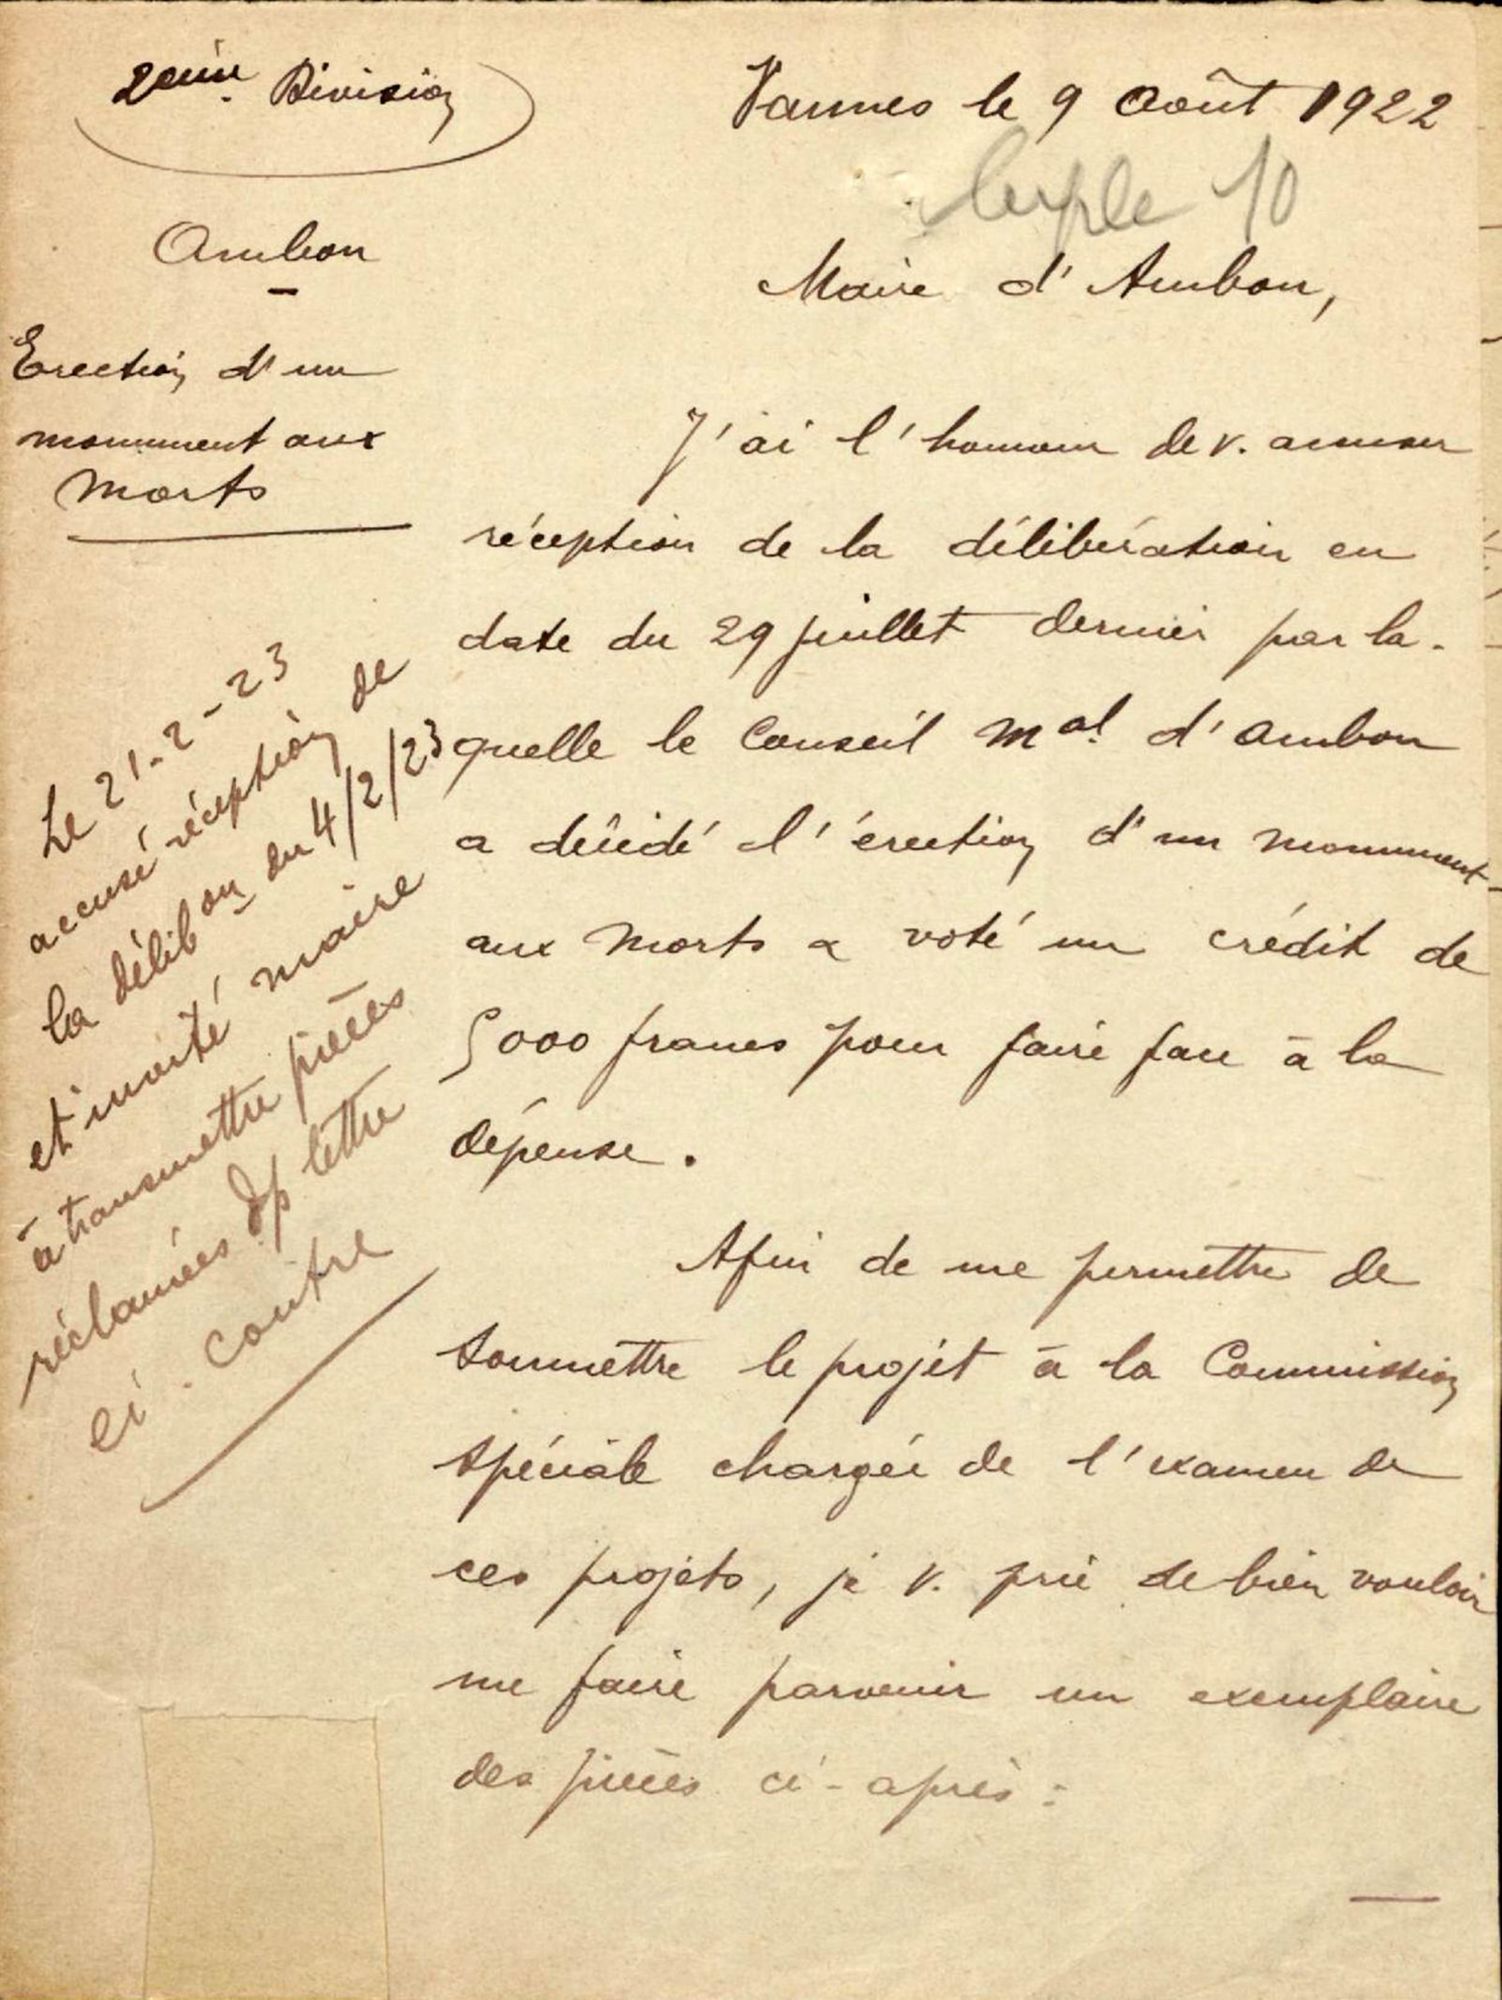 2ème Division
Vannes le 9 Août 1922
10
Ambon
Maire d'Ambon,
Erection d'un
monument aux
Morts
J'ai l'honneur de v. accuser
réception de la délibération en
date du 29 juillet dernier par la-
quelle le Conseil Mal. d'Ambon
a décidé l'érection d'un monument
aux Morts a voté un crédit de
5000 francs pour faire face à la
dépense.
Afin de me permettre de
soumettre le projet à la Commission
spéciale chargée de l'examen de
ces projets, je v. prie de bien vouloir
me faire parvenir un exemplaire
des pièces ci-après :
Le 21-2-23
accusé réception de
la délibon du 4/2/23
et invité maire
à transmettre pièces
réclamées dp lettre
ci contre